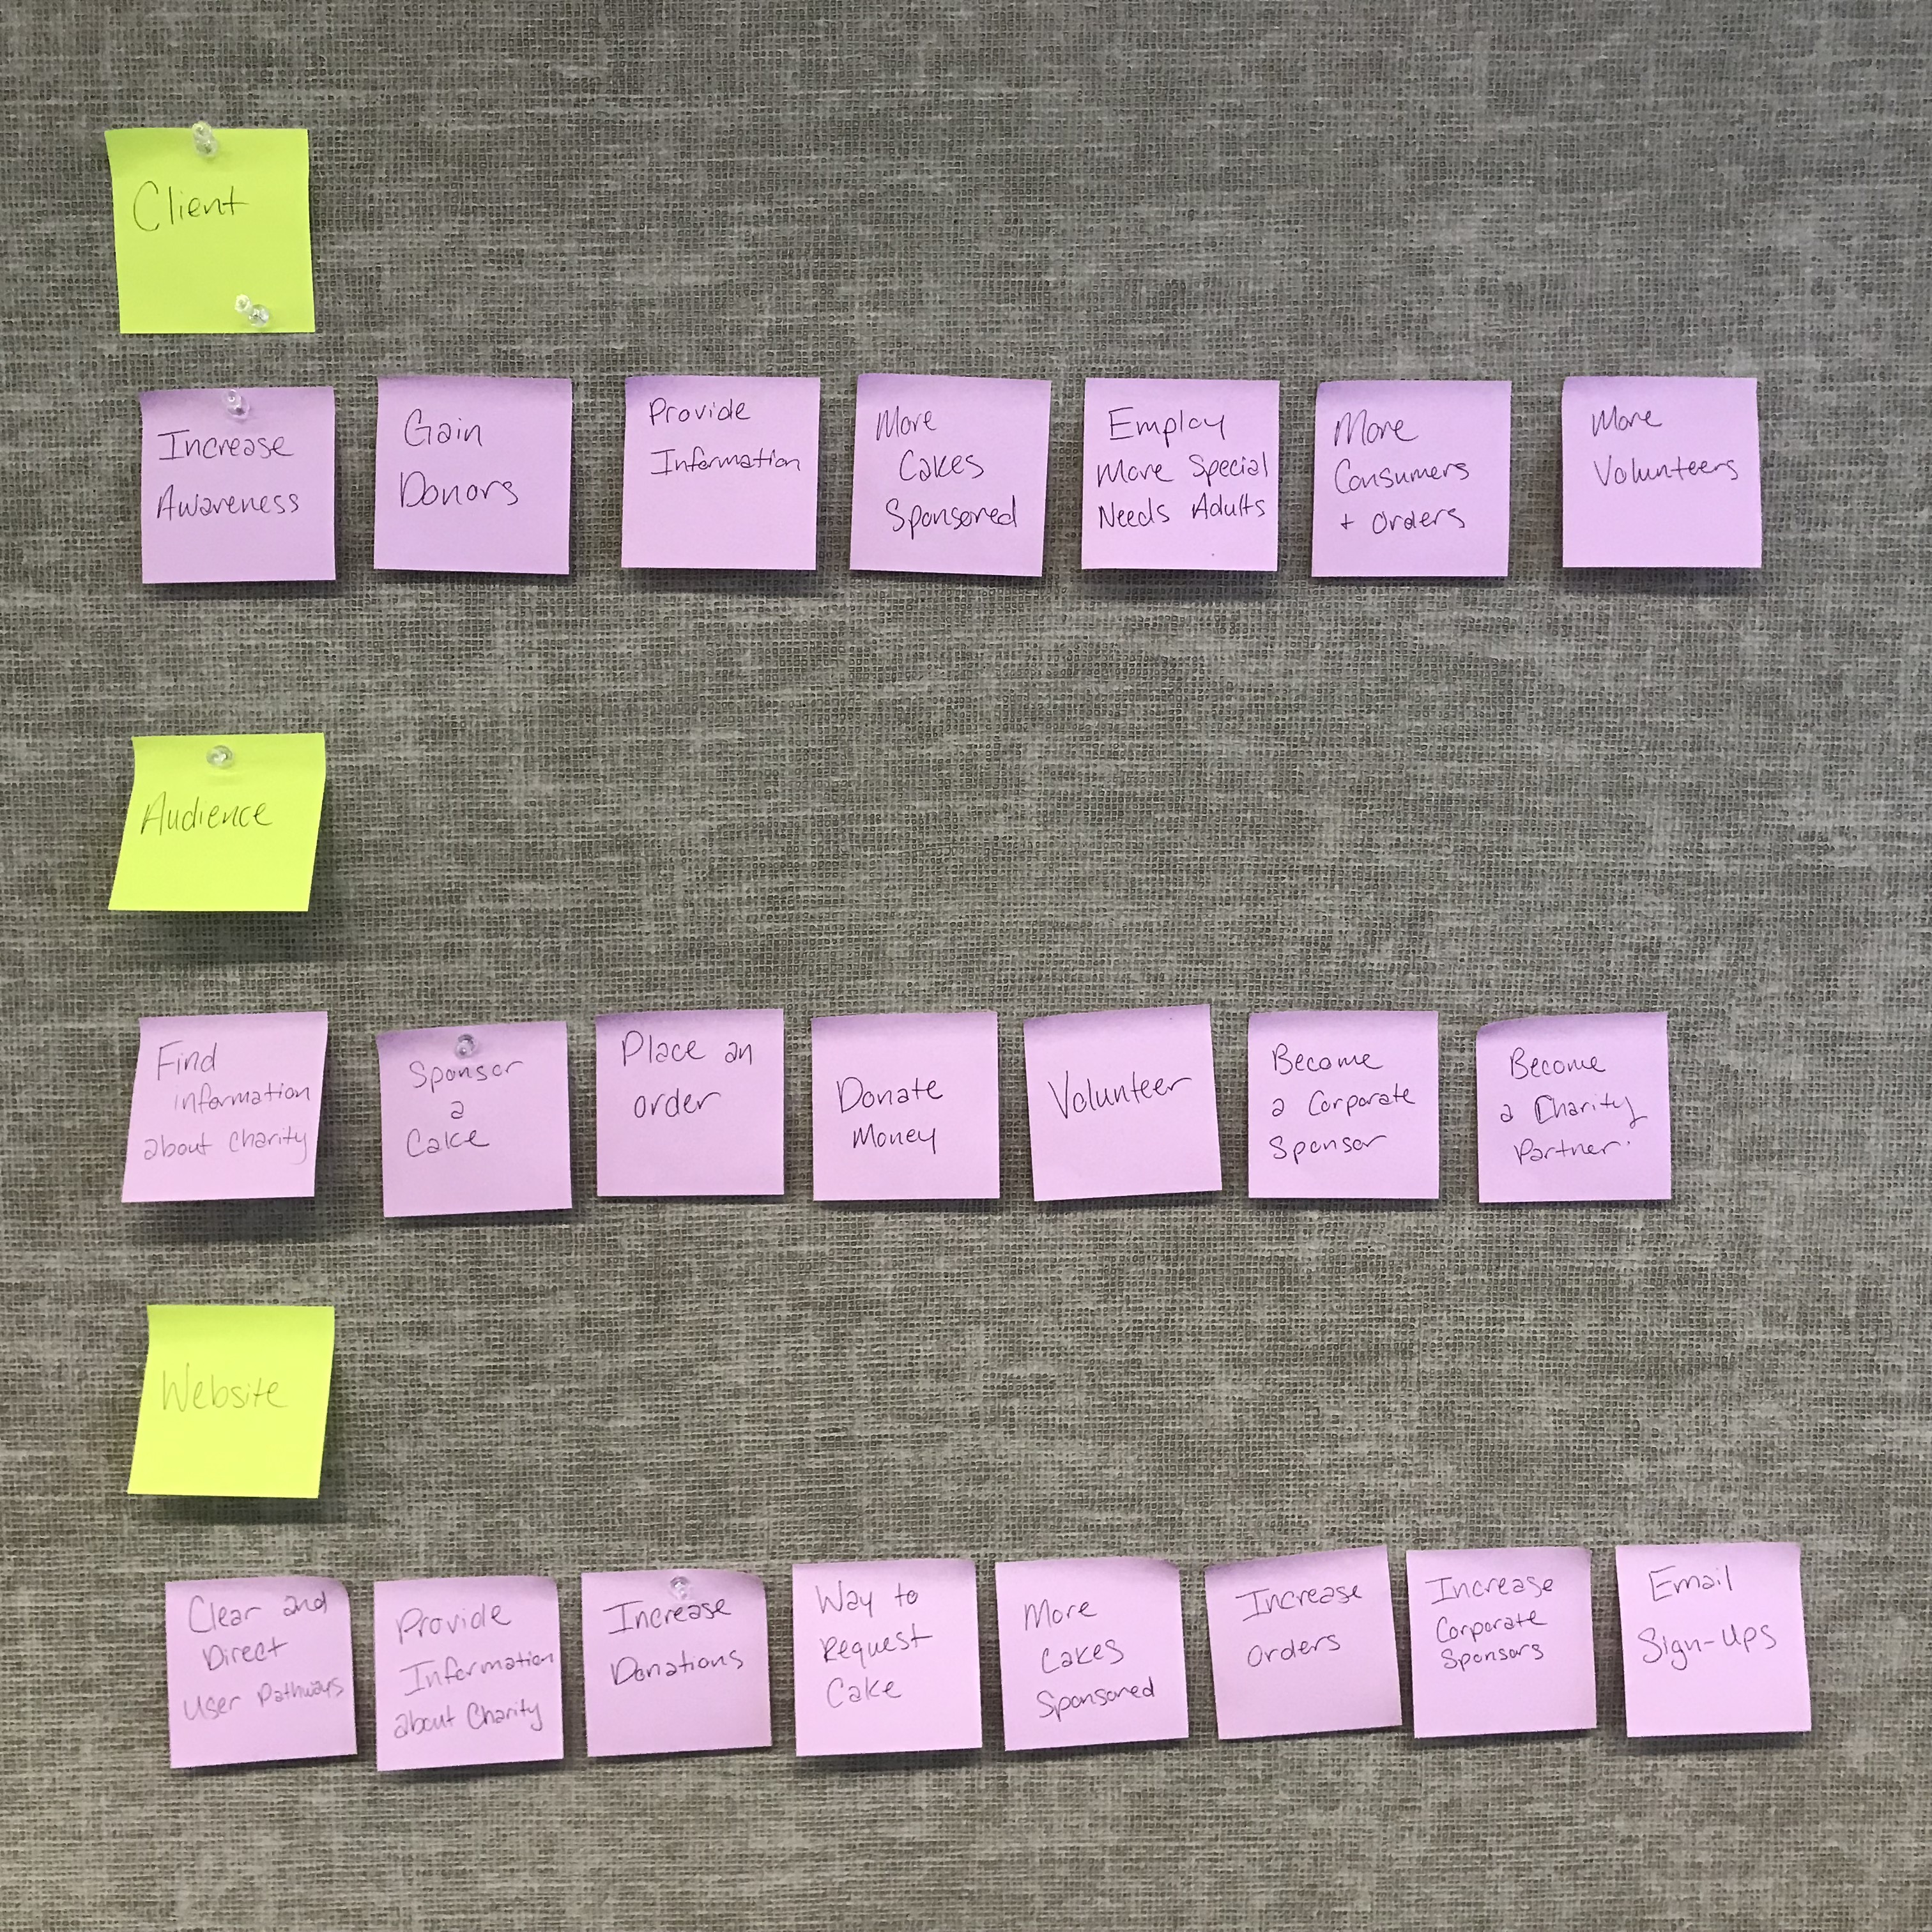 Client
Increase
Awareness
Gain
Donors
Provide
Information
More
Cakes
Sponsored
Employ
More Special
Needs Adults
More
Consumers
+ Orders
More
Volunteers
Audience
Find
information
about Charity
Sponsor
a
Cake
Place an
order
Donate
Money
Volunteer
Become
a Corporate
Sponsor
Become
a Charity
Partner.
Website
Clear and
Direct
User Pathways
Provide
Information
about Charity
Increase
Donations
Way to
Request
Cake
More
Cakes
Sponsored
Increase
Orders
Increase
Corporate
Sponsors
Email
Sign-Ups